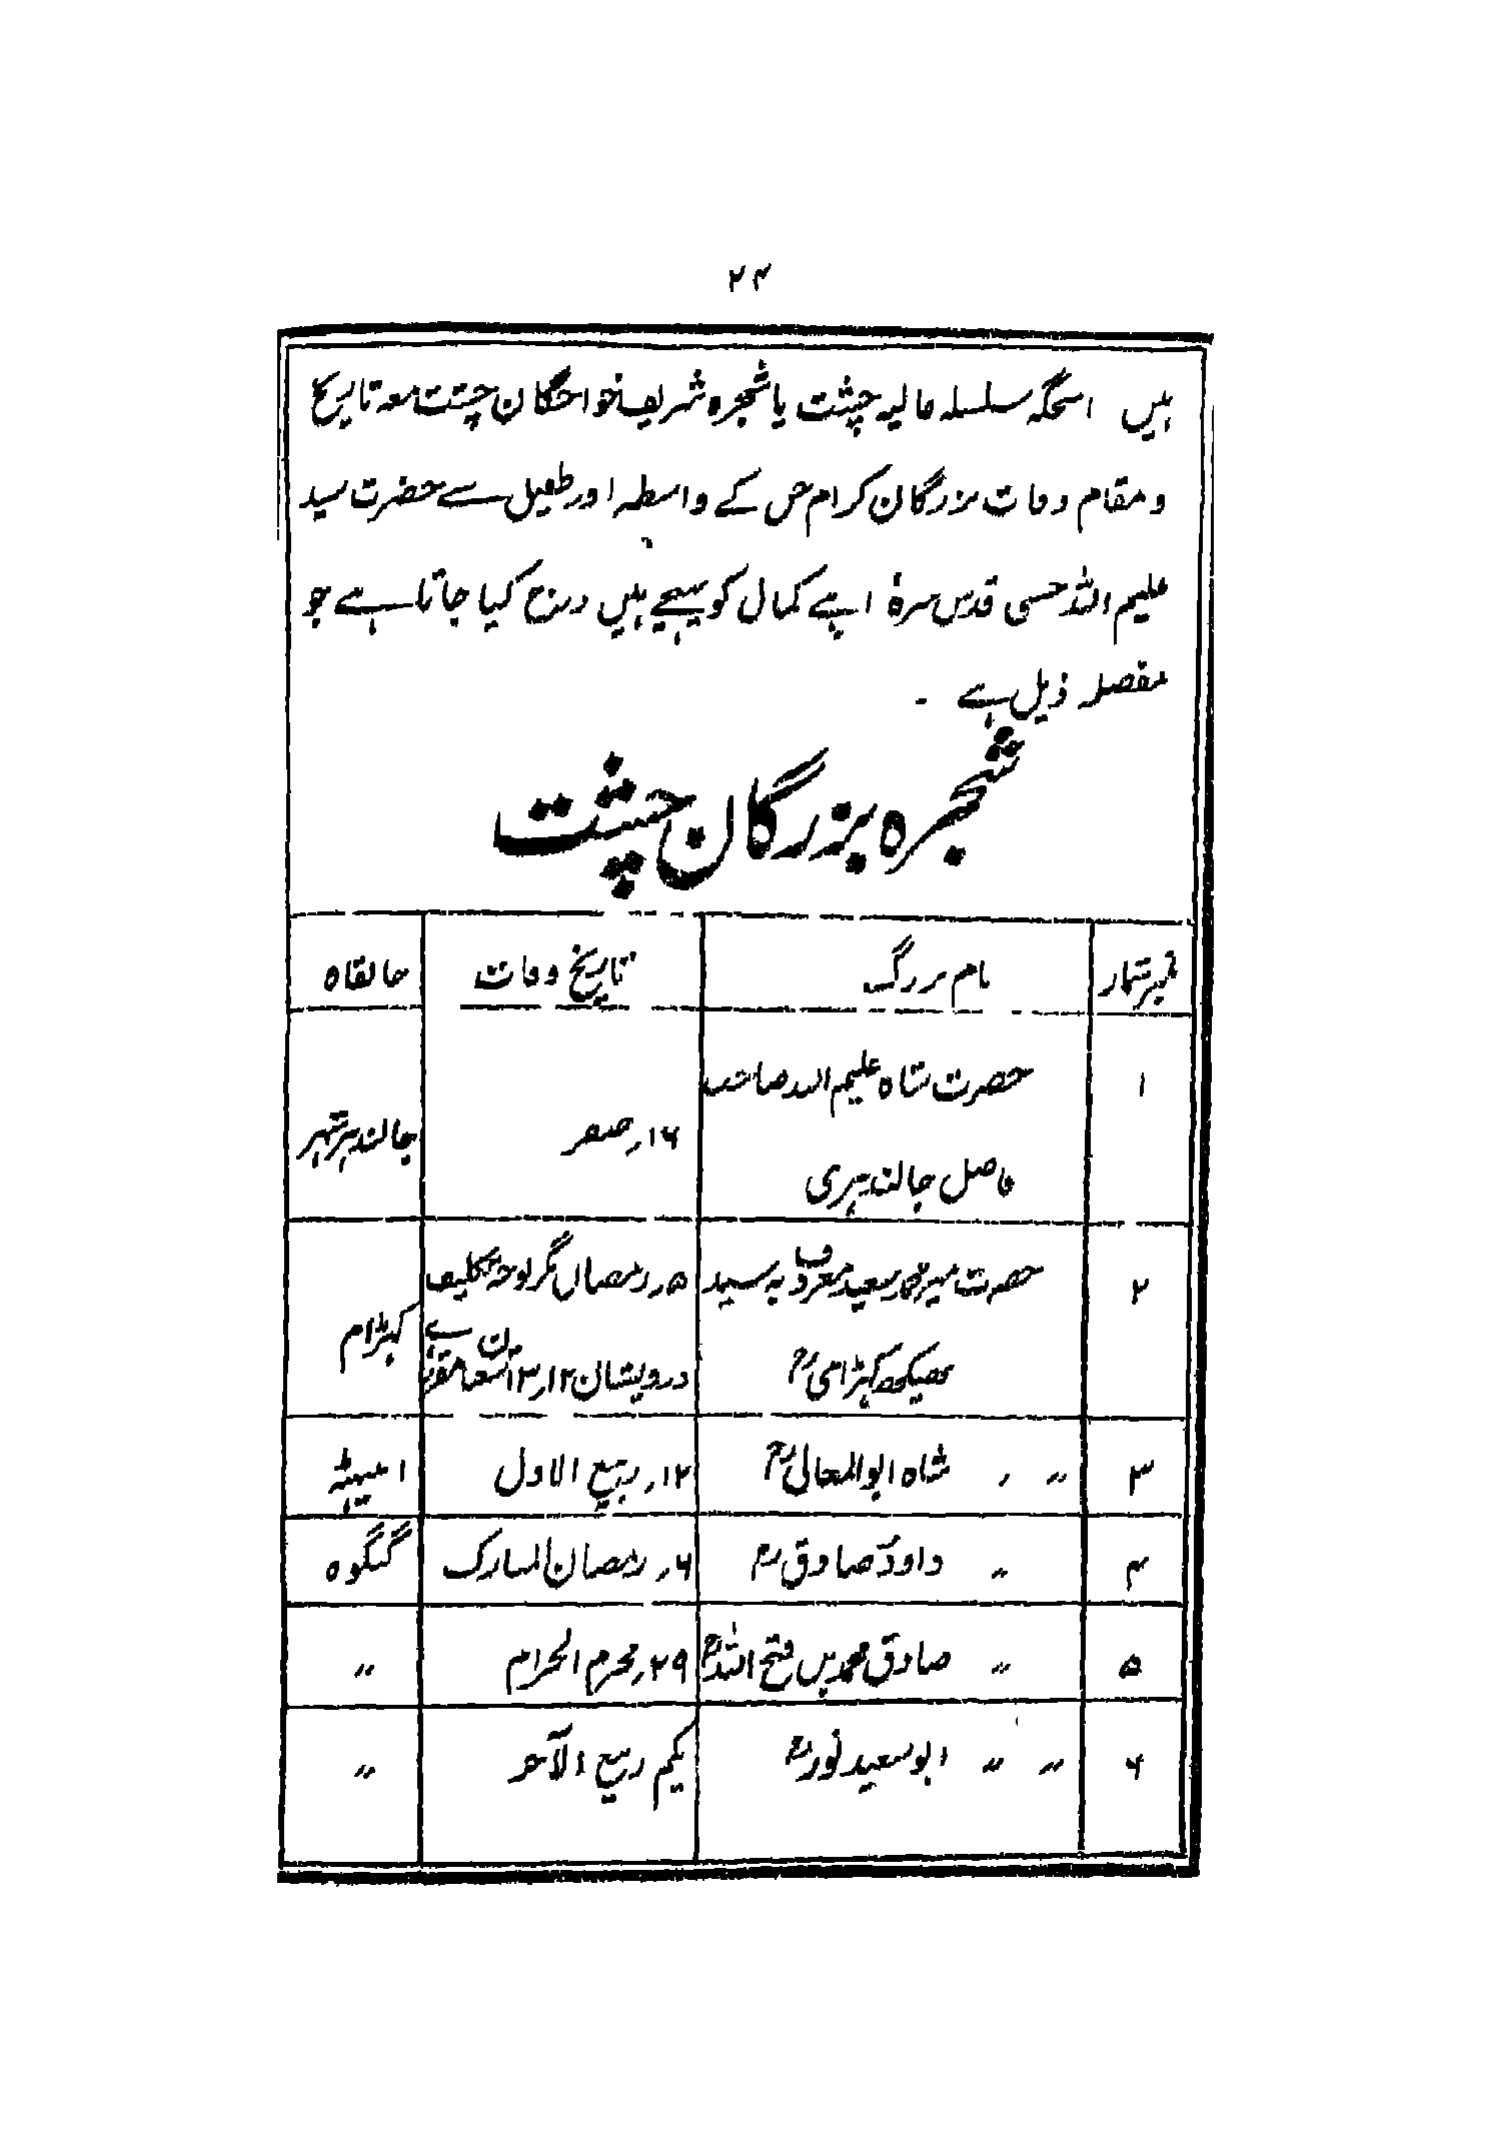 ۲۴
ہیں اسجگہ سلسلہ عالیہ چشت یا شجرہ شریف خواجگان چشت معہ تاریخ
و مقام وفات بزرگان کرام جن کے واسطہ اور طفیل سے حضرت سید
علیم اللہ حسنی قدس سرہٗ اپنے کمال کو پہنچے ہیں درج کیا جاتا ہے جو
مفصلہ ذیل ہے ۔
شجرہ بزرگان چشت
نمبر شمار نام بزرگ تاریخ وفات خانقاہ
۱ حضرت شاہ علیم اللہ صاحب فاضل جالندہری ۱۶؍ صفر جالندہر شہر
۲ حضرت میر محمد سعید معروف بہ سید بھیکھ کہڑامیؒ ۵؍ رمضان مگر بوجہ تکلیف درویشان ۱۲؍ ۱۳ کہڑام
۳ 〃 〃 شاہ ابو المعالیؒ ۱۲؍ ربیع الاول انبیٹہ
۴ 〃 داودؑ صادقؒ ۶؍ رمضان المبارک گنگوہ
۵ 〃 صادق محمد بن فتح اللہؒ ۲۹؍ محرم الحرام 〃
۶ 〃 〃 ابو سعید نورؒ یکم ربیع الآخر 〃